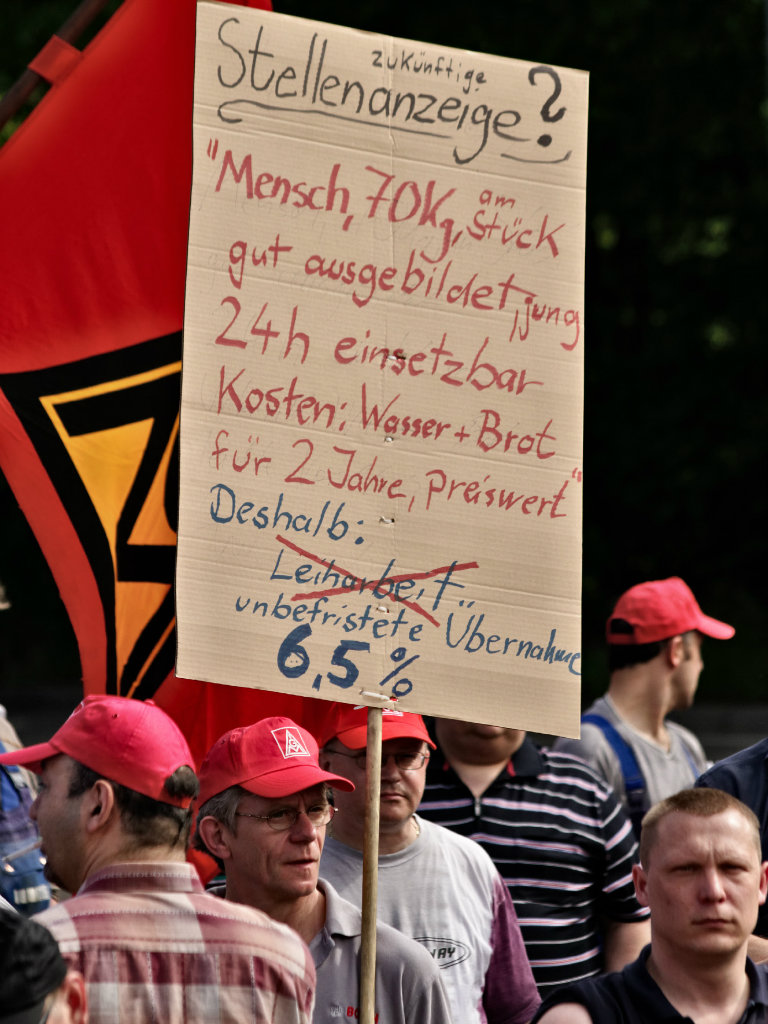 zukünftige
Stellenanzeige?
"Mensch, 70Kg, am Stück
gut ausgebildet, jung
24h einsetzbar
Kosten: Wasser + Brot
für 2 Jahre, Preiswert"
Deshalb:
Leiharbeit
unbefristete Übernahme
6,5%